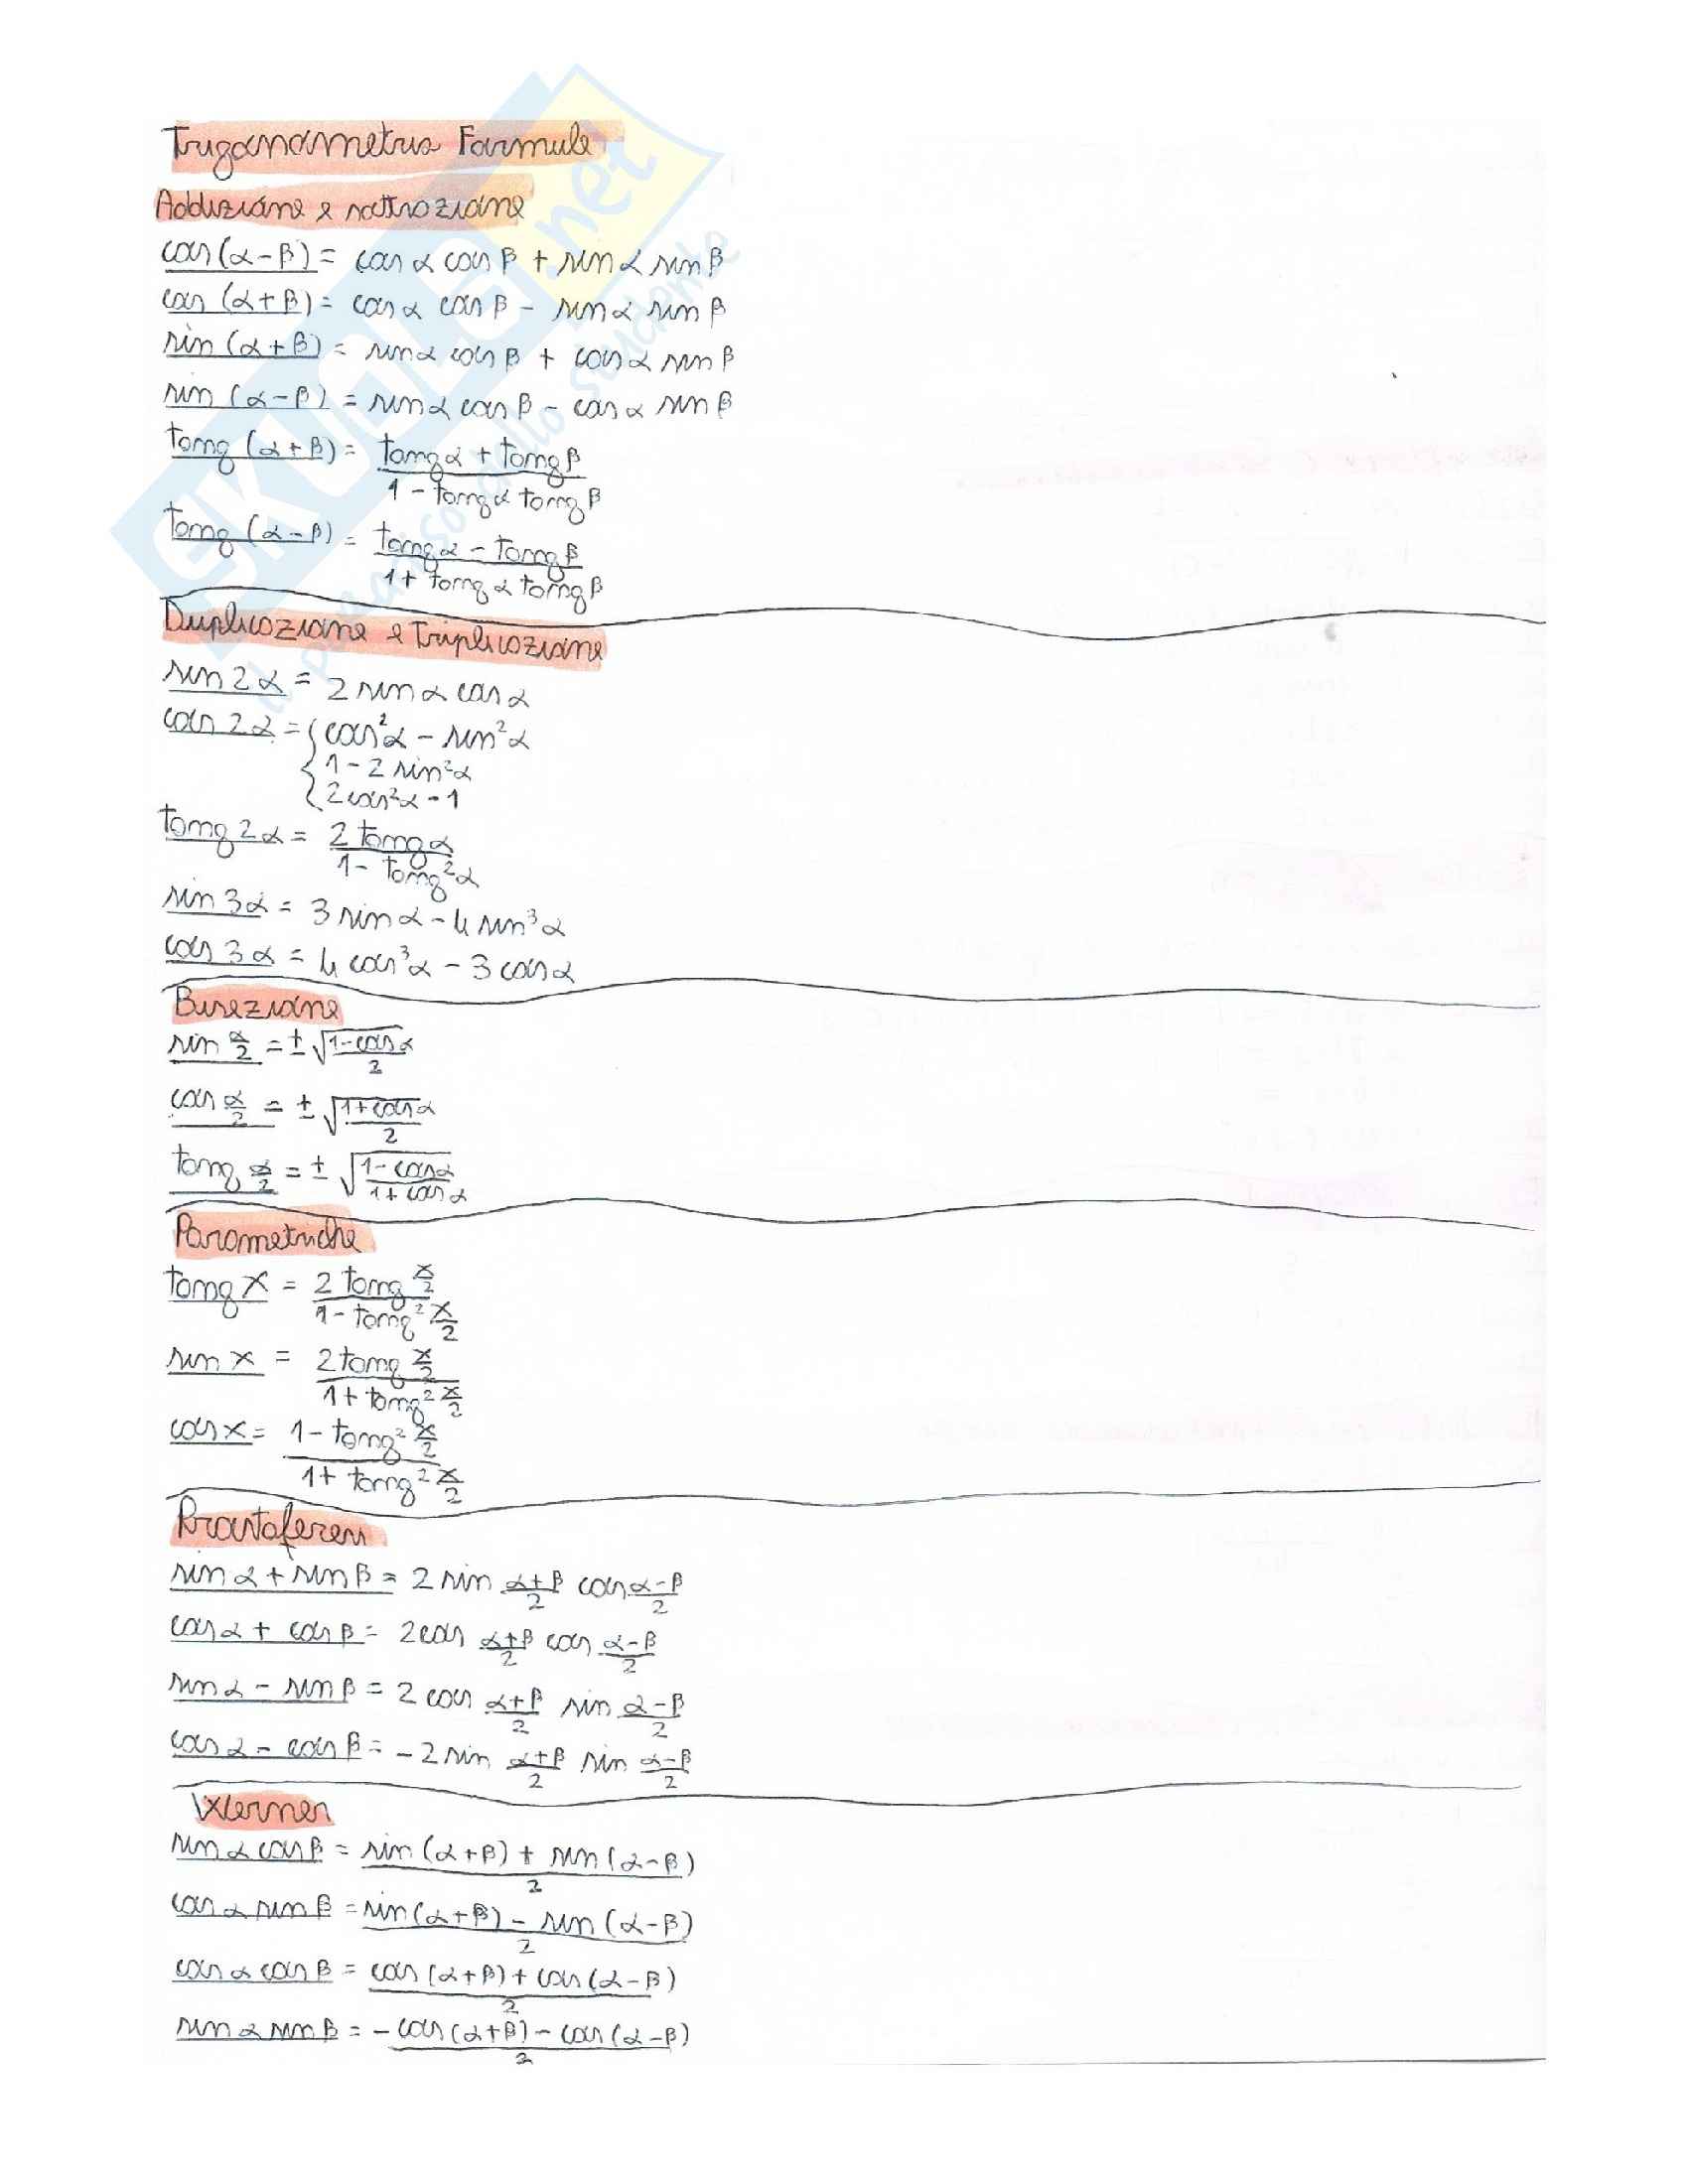 Trigonometria Formule
Addizione e sottrazione
cos(α-β) = cos α cos β + sin α sin β
cos (α+β) = cos α cos β - sin α sin β
sin (α+β) = sin α cos β + cos α sin β
sin (α-β) = sin α cos β - cos α sin β
tang (α+β) = (tang α + tang β) / (1 - tang α tang β)
tang (α-β) = (tang α - tang β) / (1 + tang α tang β)
Duplicazione e Triplicazione
sin 2α = 2 sin α cos α
cos 2α = { cos²α - sin²α
1 - 2 sin²α
2cos²α - 1
tang 2α = 2 tang α / (1 - tang²α)
sin 3α = 3 sin α - 4 sin³α
cos 3α = 4 cos³α - 3 cos α
Bisezione
sin α/2 = ± √((1-cos α)/2)
cos α/2 = ± √((1+cos α)/2)
tang α/2 = ± √((1-cos α)/(1+cos α))
Parametriche
tang x = 2 tang x/2 / (1 - tang² x/2)
sin x = 2 tang x/2 / (1 + tang² x/2)
cos x = (1 - tang² x/2) / (1 + tang² x/2)
Prostaferesi
sin α + sin β = 2 sin (α+β)/2 cos (α-β)/2
cos α + cos β = 2cos (α+β)/2 cos (α-β)/2
sin α - sin β = 2 cos (α+β)/2 sin (α-β)/2
cos α - cos β = -2 sin (α+β)/2 sin (α-β)/2
Werner
sin α cos β = (sin(α+β) + sin(α-β)) / 2
cos α sin β = (sin(α+β) - sin(α-β)) / 2
cos α cos β = (cos(α+β) + cos(α-β)) / 2
sin α sin β = - (cos(α+β) - cos(α-β)) / 2
SKUOLA.net
il paradiso dello studente